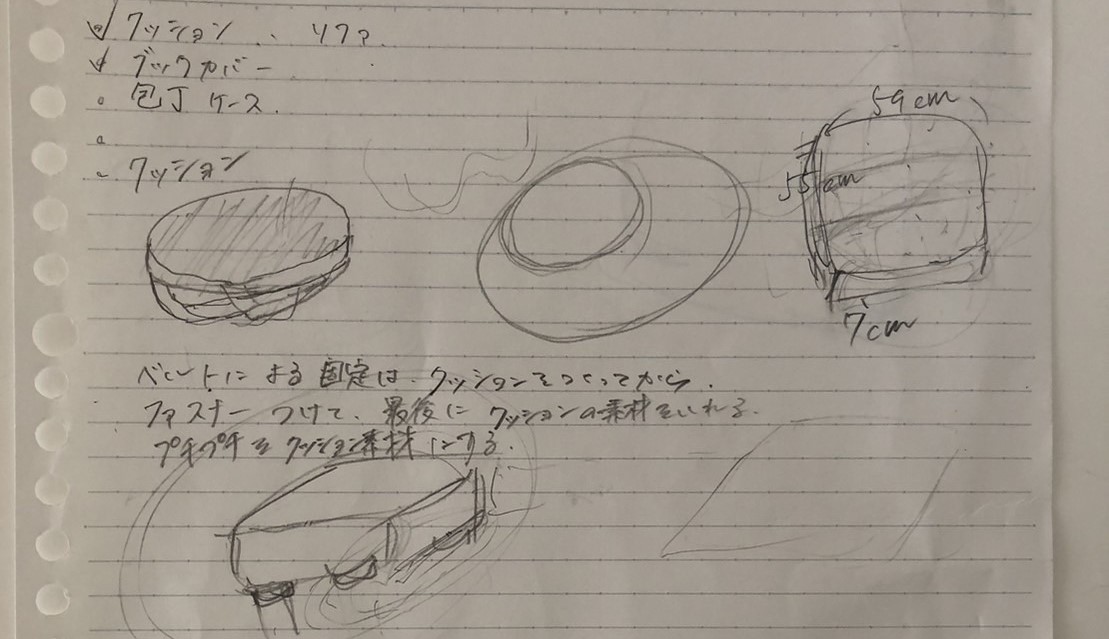 クッション、リフ?
ブックカバー
包丁ケース.
クッション
59cm
55cm
7cm
ベルトによる固定は、クッションをつくってから.
ファスナーつけて、最後にクッションの素材をいれる.
プチプチをクッション素材にする.